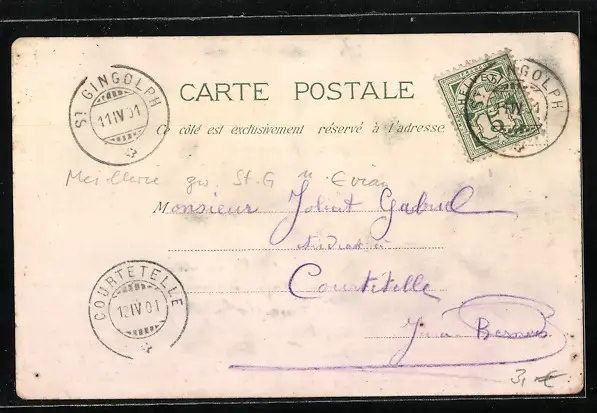 St GINGOLPH
11 IV 01
CARTE POSTALE
HELVETIA
5
St GINGOLPH
Ce côté est exclusivement réservé à l'adresse.
St. G Evian
Monsieur Joliat Gabriel
Courtételle
Jura Bernois
COURTETELLE
12 IV 01
3,- €